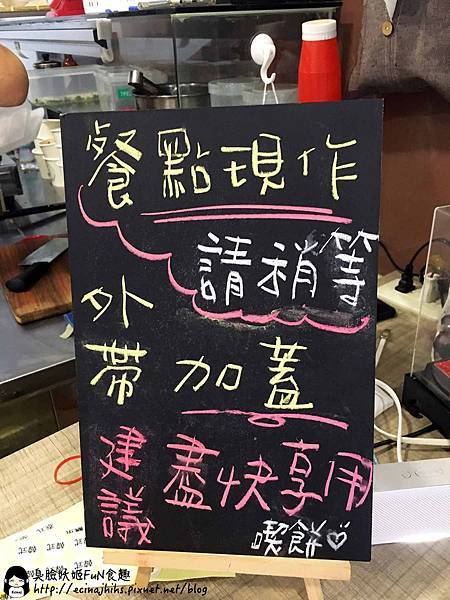 餐點現作
請稍等
外帶 加蓋
建議 盡快享用
喫餅♡
臭臉妖姬FuN食趣
http://ecinajhihs.pixnet.net/blog